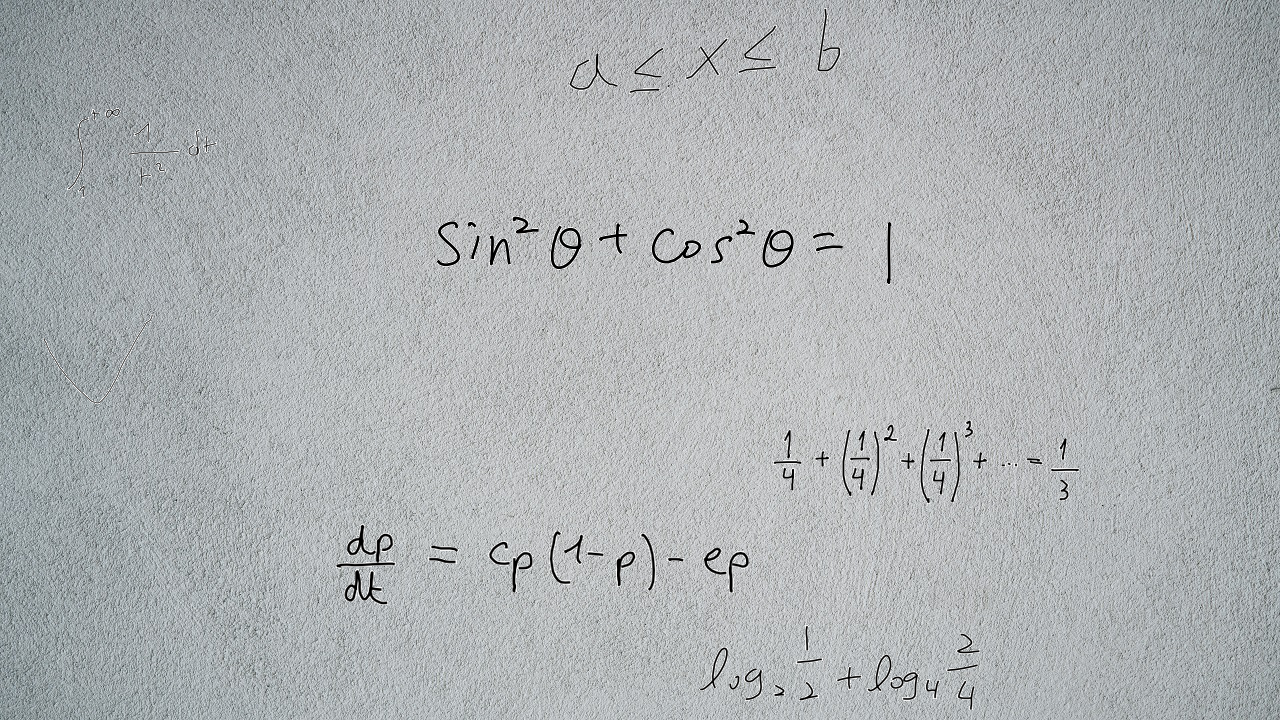 a ≤ x ≤ b
∫₁^{+∞} 1/t² dt
sin²θ + cos²θ = 1
1/4 + (1/4)² + (1/4)³ + ... = 1/3
dp/dt = cp(1-p) - ep
log₂ 1/2 + log₄ 2/4